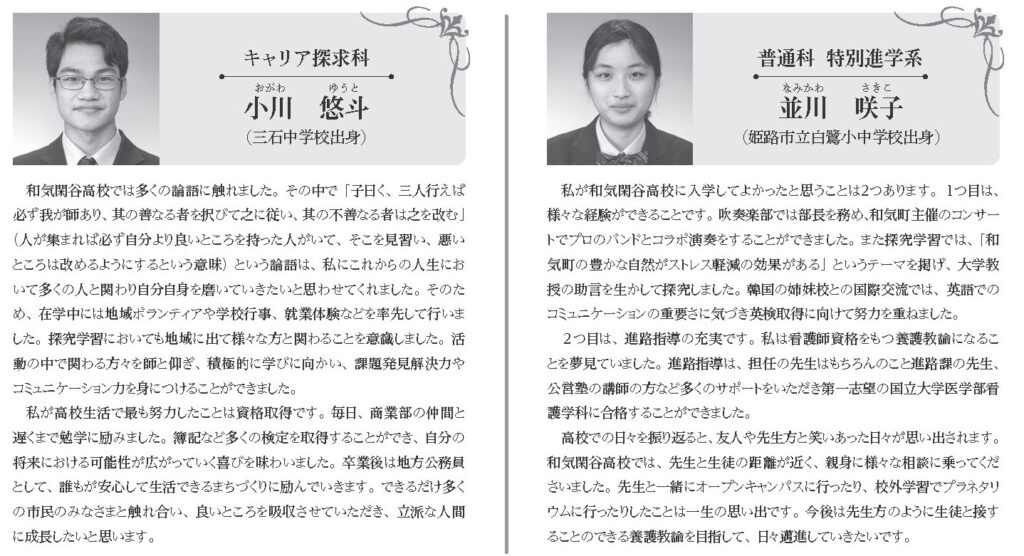 キャリア探求科
おがわ ゆうと
小川 悠斗
(三石中学校出身)
和気閑谷高校では多くの論語に触れました。その中で「子曰く、三人行えば
必ず我が師あり、其の善なる者を択びて之に従い、其の不善なる者は之を改む」
(人が集まれば必ず自分より良いところを持った人がいて、そこを見習い、悪い
ところは改めるようにするという意味)という論語は、私にこれからの人生にお
いて多くの人と関わり自分自身を磨いていきたいと思わせてくれました。そのた
め、在学中には地域ボランティアや学校行事、就業体験などを率先して行いま
した。探究学習においても地域に出て様々な方と関わることを意識しました。活
動の中で関わる方々を師と仰ぎ、積極的に学びに向かい、課題発見解決力や
コミュニケーション力を身につけることができました。
私が高校生活で最も努力したことは資格取得です。毎日、商業部の仲間と
遅くまで勉学に励みました。簿記など多くの検定を取得することができ、自分の
将来における可能性が広がっていく喜びを味わいました。卒業後は地方公務員
として、誰もが安心して生活できるまちづくりに励んでいきます。できるだけ多く
の市民のみなさまと触れ合い、良いところを吸収させていただき、立派な人間
に成長したいと思います。
普通科 特別進学系
なみかわ さきこ
並川 咲子
(姫路市立白鷺小中学校出身)
私が和気閑谷高校に入学してよかったと思うことは2つあります。1つ目は、
様々な経験ができることです。吹奏楽部では部長を務め、和気町主催のコンサー
トでプロのバンドとコラボ演奏をすることができました。また探究学習では、「和
気町の豊かな自然がストレス軽減の効果がある」というテーマを掲げ、大学教
授の助言を生かして探究しました。韓国の姉妹校との国際交流では、英語での
コミュニケーションの重要さに気づき英検取得に向けて努力を重ねました。
2つ目は、進路指導の充実です。私は看護師資格をもつ養護教諭になるこ
とを夢見ていました。進路指導は、担任の先生はもちろんのこと進路課の先生、
公営塾の講師の方など多くのサポートをいただき第一志望の国立大学医学部看
護学科に合格することができました。
高校での日々を振り返ると、友人や先生方と笑いあった日々が思い出されます。
和気閑谷高校では、先生と生徒の距離が近く、親身に様々な相談に乗ってくだ
さいました。先生と一緒にオープンキャンパスに行ったり、校外学習でプラネタリ
ウムに行ったりしたことは一生の思い出です。今後は先生方のように生徒と接す
ることのできる養護教諭を目指して、日々邁進していきたいです。